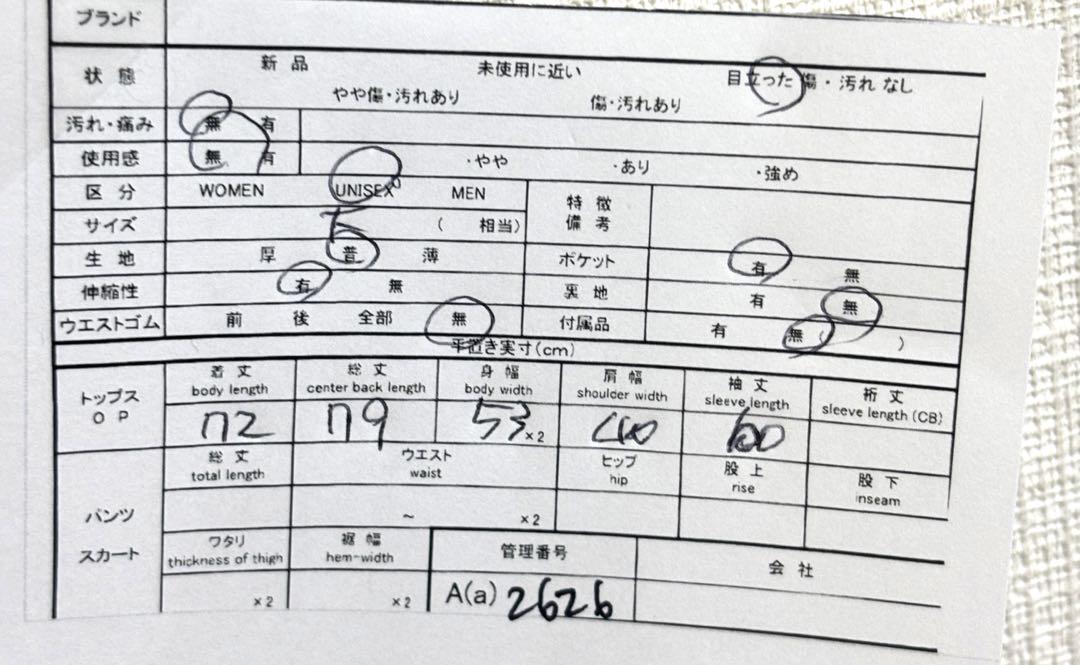 ブランド
状態 新品 未使用に近い 目立った傷・汚れなし
やや傷・汚れあり 傷・汚れあり
汚れ・痛み 無 有
使用感 無 有 ・やや ・あり ・強め
区分 WOMEN UNISEX MEN 特徴備考
サイズ 5 ( 相当)
生地 厚 普 薄 ポケット 有 無
伸縮性 有 無 裏地 有 無
ウエストゴム 前 後 全部 無 付属品 有 無( )
平置き実寸(cm)
トップス OP 着丈 body length 総丈 center back length 身幅 body width 肩幅 shoulder width 袖丈 sleeve length 裄丈 sleeve length (CB)
72 79 53 ×2 40 60
パンツ スカート 総丈 total length ウエスト waist ヒップ hip 股上 rise 股下 inseam
~ ×2
ワタリ thickness of thigh 裾幅 hem-width 管理番号 会社
×2 ×2 A(a) 2626